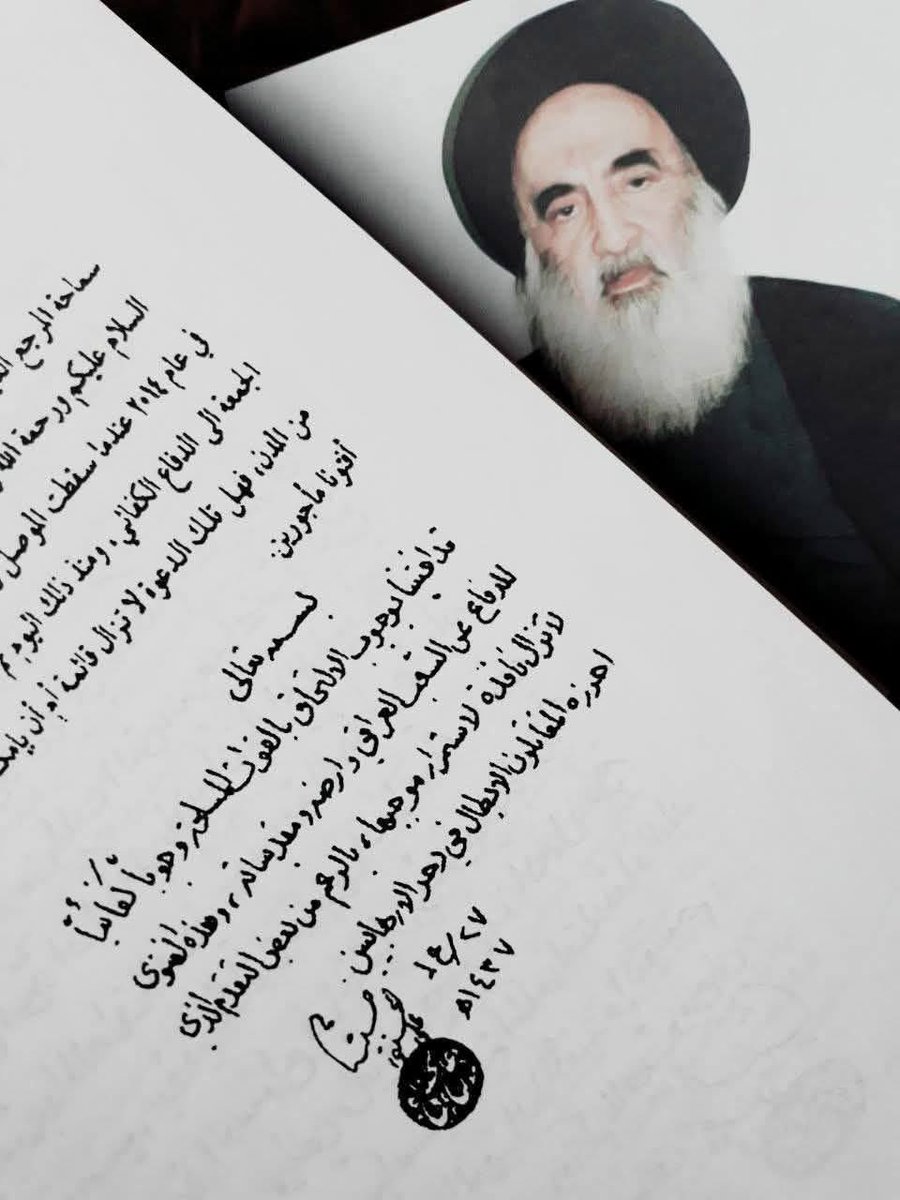 سماحة المرجع
السلام عليكم ورحمة الله
في عام ٢٠١٤ عندما سقطت الموصل
الجمعة الى الدفاع الكفائي، ومنذ ذلك اليوم
من المدن، فهل تلك الدعوة لا تزال قائمة أم أن بإمكا
أفتونا مأجورين
بسمه تعالى
قد افتينا بوجوب الالتحاق بالقوات المسلحة وجوباً كفائياً
للدفاع عن الشعب العراقي وارضه ومقدساته، وهذه الفتوى
لا تزال نافذة لاستمرار موجبها، بالرغم من بعض التقدم الذي
احرزه المقاتلون الابطال في دحر الارهابيين
٢٧ / ع ١
١٤٣٧هـ